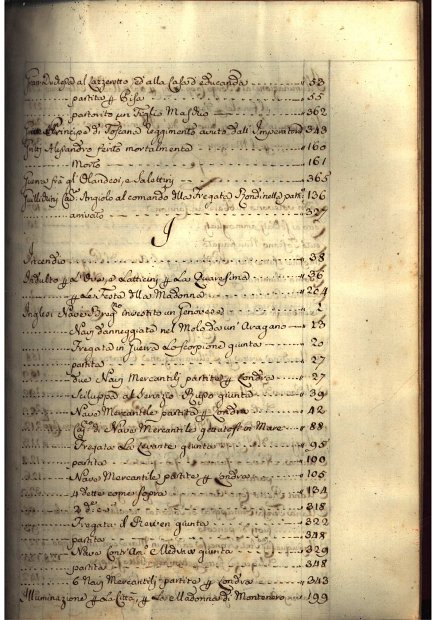 Gran Duchessa al Lazzeretto, ed alla Casa d'educanda 53
partita p Pisa 55
partorito un Figlio Maschio 362
Principe di Toscana Reggimento avuto dall' Imperatore 343
Alesandro ferito mortalmente 160
Morto 161
Guerra frà gl'Olandesi, e Salettini 365
Angiolo al comando della Fregata Rondinella 136
arrivato 327
I
Incendio 38
Indulto p l'Ova, e Latticini p La Quaresima 36
p La Festa della Madonna 264
Inglesi Nave investito un Genovese 2
Navi danneggiata nel Molo da un' Uragano 13
Fregata in Guerra Lo Scorpione giunta 20
partita 27
due Navi Mercantili partite p Londra 27
Sciluppo al Servizio Russo giunta 39
Nave Mercantile partita p Londra 42
di Nave Mercantile gettatosi in Mare 88
Fregata La Levante giunta 95
partita 100
Nave Mercantile partite p Londra 105
4 dette come sopra 134
2 d.e 318
Fregata il giunta 322
partita 348
Nave giunta 329
partita 348
6 Navi Mercantili partite p Londra 343
Illuminazione p La Città, p La Madonna di Montenero 199